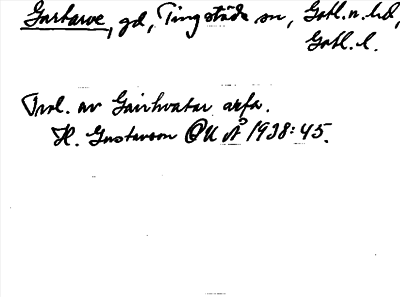 Gartarve, gd, Tingstäde sn, Gotl. n. hd,
Gotl. l.
Trol. av Gairhvatar arfa.
H. Gustavson OUÅ 1938: 45.